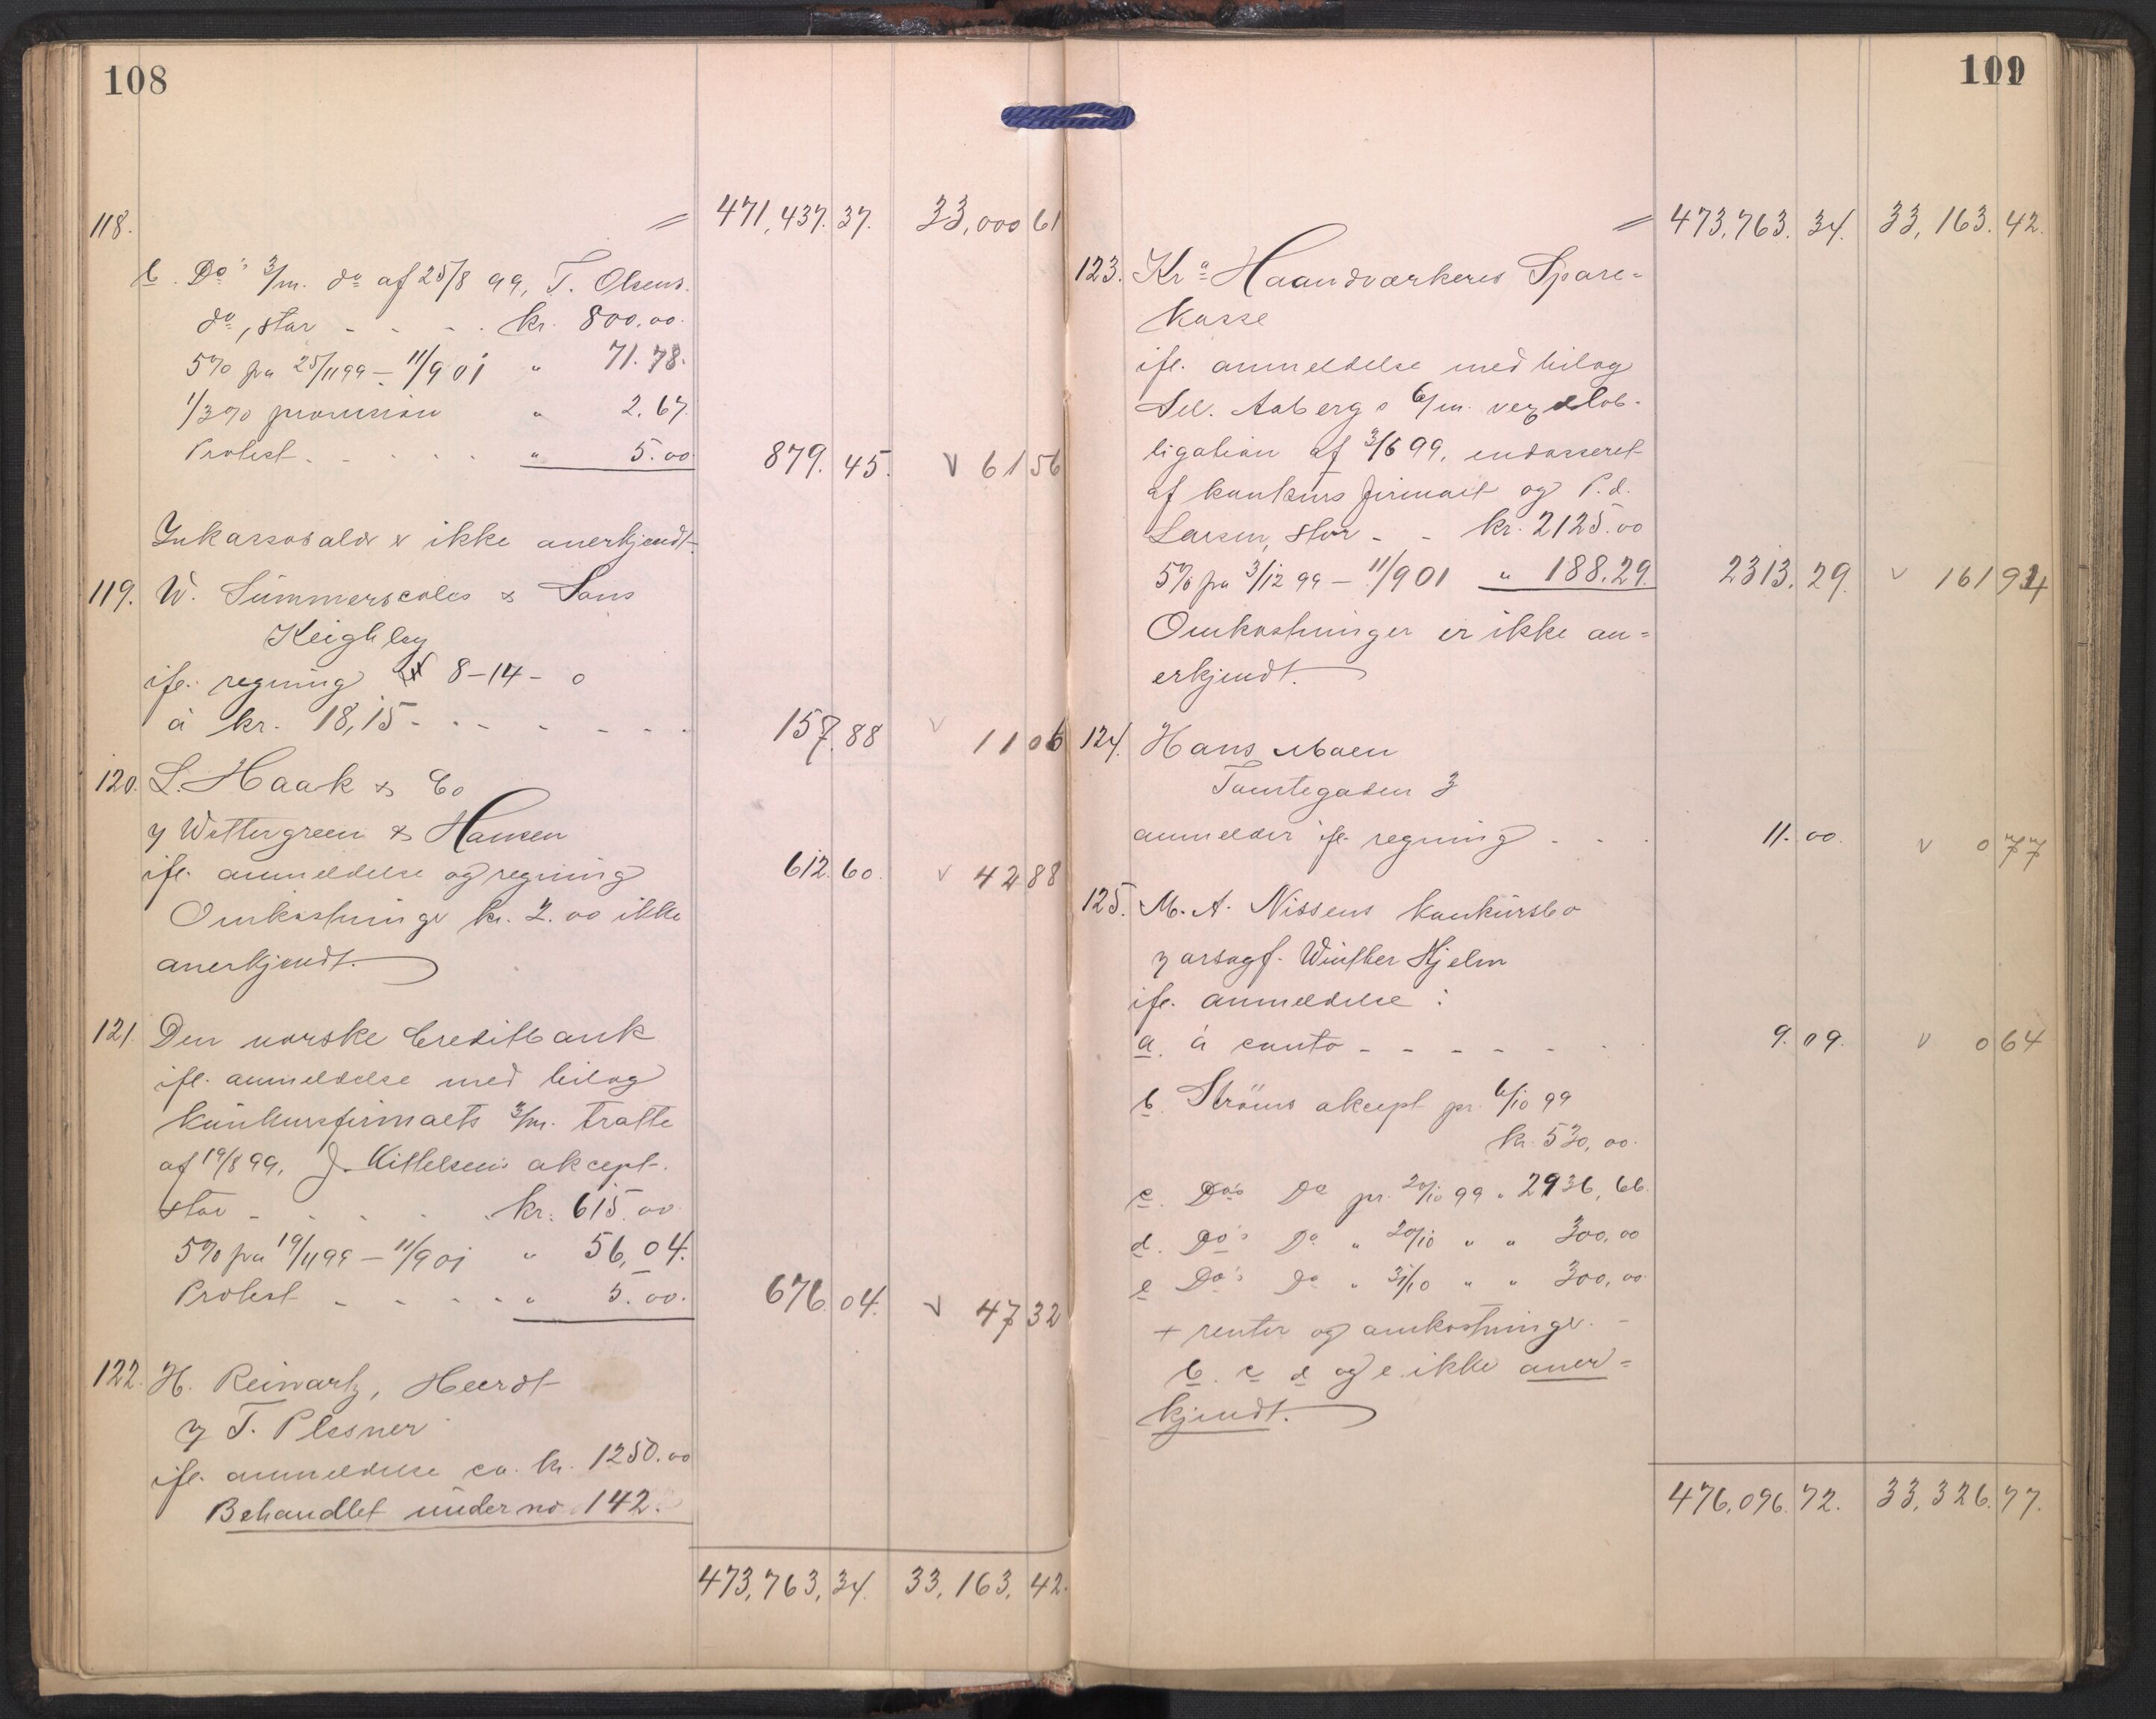 108
118. = 471,437.37. 33,000 61
b. Do's 3/m. do af 25/8 99, T. Olsens.
do, stor - - - kr. 800.00.
5% fra 25/11 99 - 11/9 01 " 71.78.
1/3% provision " 2.67.
Protest - - - - " 5.00 879.45. V 61 56
Inkassosalær ikke anerkjendt.
119. W. Summerscales & Sons
Keighley
ifl. regning £ 8-14-0
à kr. 18,15 - - - - - 157.88 V 11 06
120. L. Haak & Co
v/ Wettergreen & Hansen
ifl. anmeldelse og regning 612.60. V 42 88
Omkostninger kr. 2.00 ikke
anerkjendt.
121. Den norske Creditbank
ifl. anmeldelse med bilag
konkursfirmaets 3/m. tratte
af 19/8 99, J. Kittelsens akcept.
stor - - - - kr. 615.00
5% fra 19/11 99 - 11/9 01 " 56,04.
Protest - - - - " 5.00. 676.04. V 47 32
122. H. Reinartz, Heerdt
v/ T. Plesner
ifl. anmeldelse ca. kr. 1250.00
Behandlet under no 142.
473,763,34. 33,163,42.
109
= 473,763.34. 33,163.42.
123. Kra Haandværkeres Spare=
kasse
ifl. anmeldelse med bilag
Sev. Aabergs 6/m. vexelob-
ligation af 3/6 99, endosseret
af konkursfirmaet og P. d.
Larsen, stor - - kr. 2125.00
5% fra 3/12 99 - 11/9 01 " 188.29. 2313.29. V 161 94
Omkostninger er ikke an=
erkjendt.
124. Hans Moen
Tomtegaden 3
anmelder ifl. regning - - - 11.00. V 0 77
125. M. A. Nissens konkursbo
v/ orsagf. Winther Hjelm
ifl. anmeldelse:
a. à conto - - - - - - 9.09. V 0 64
b. Ströms akcept pr. 6/10 99
kr. 530,00.
c. Do's Do pr. 20/10 99 " 2936,66.
d. Do's Do " 20/10 " " 300,00
e Do's Do " 31/10 " " 300,00
+ renter og omkostninger. -
b. c d og e ikke aner=
kjendt.
476,096.72. 33,326.77.